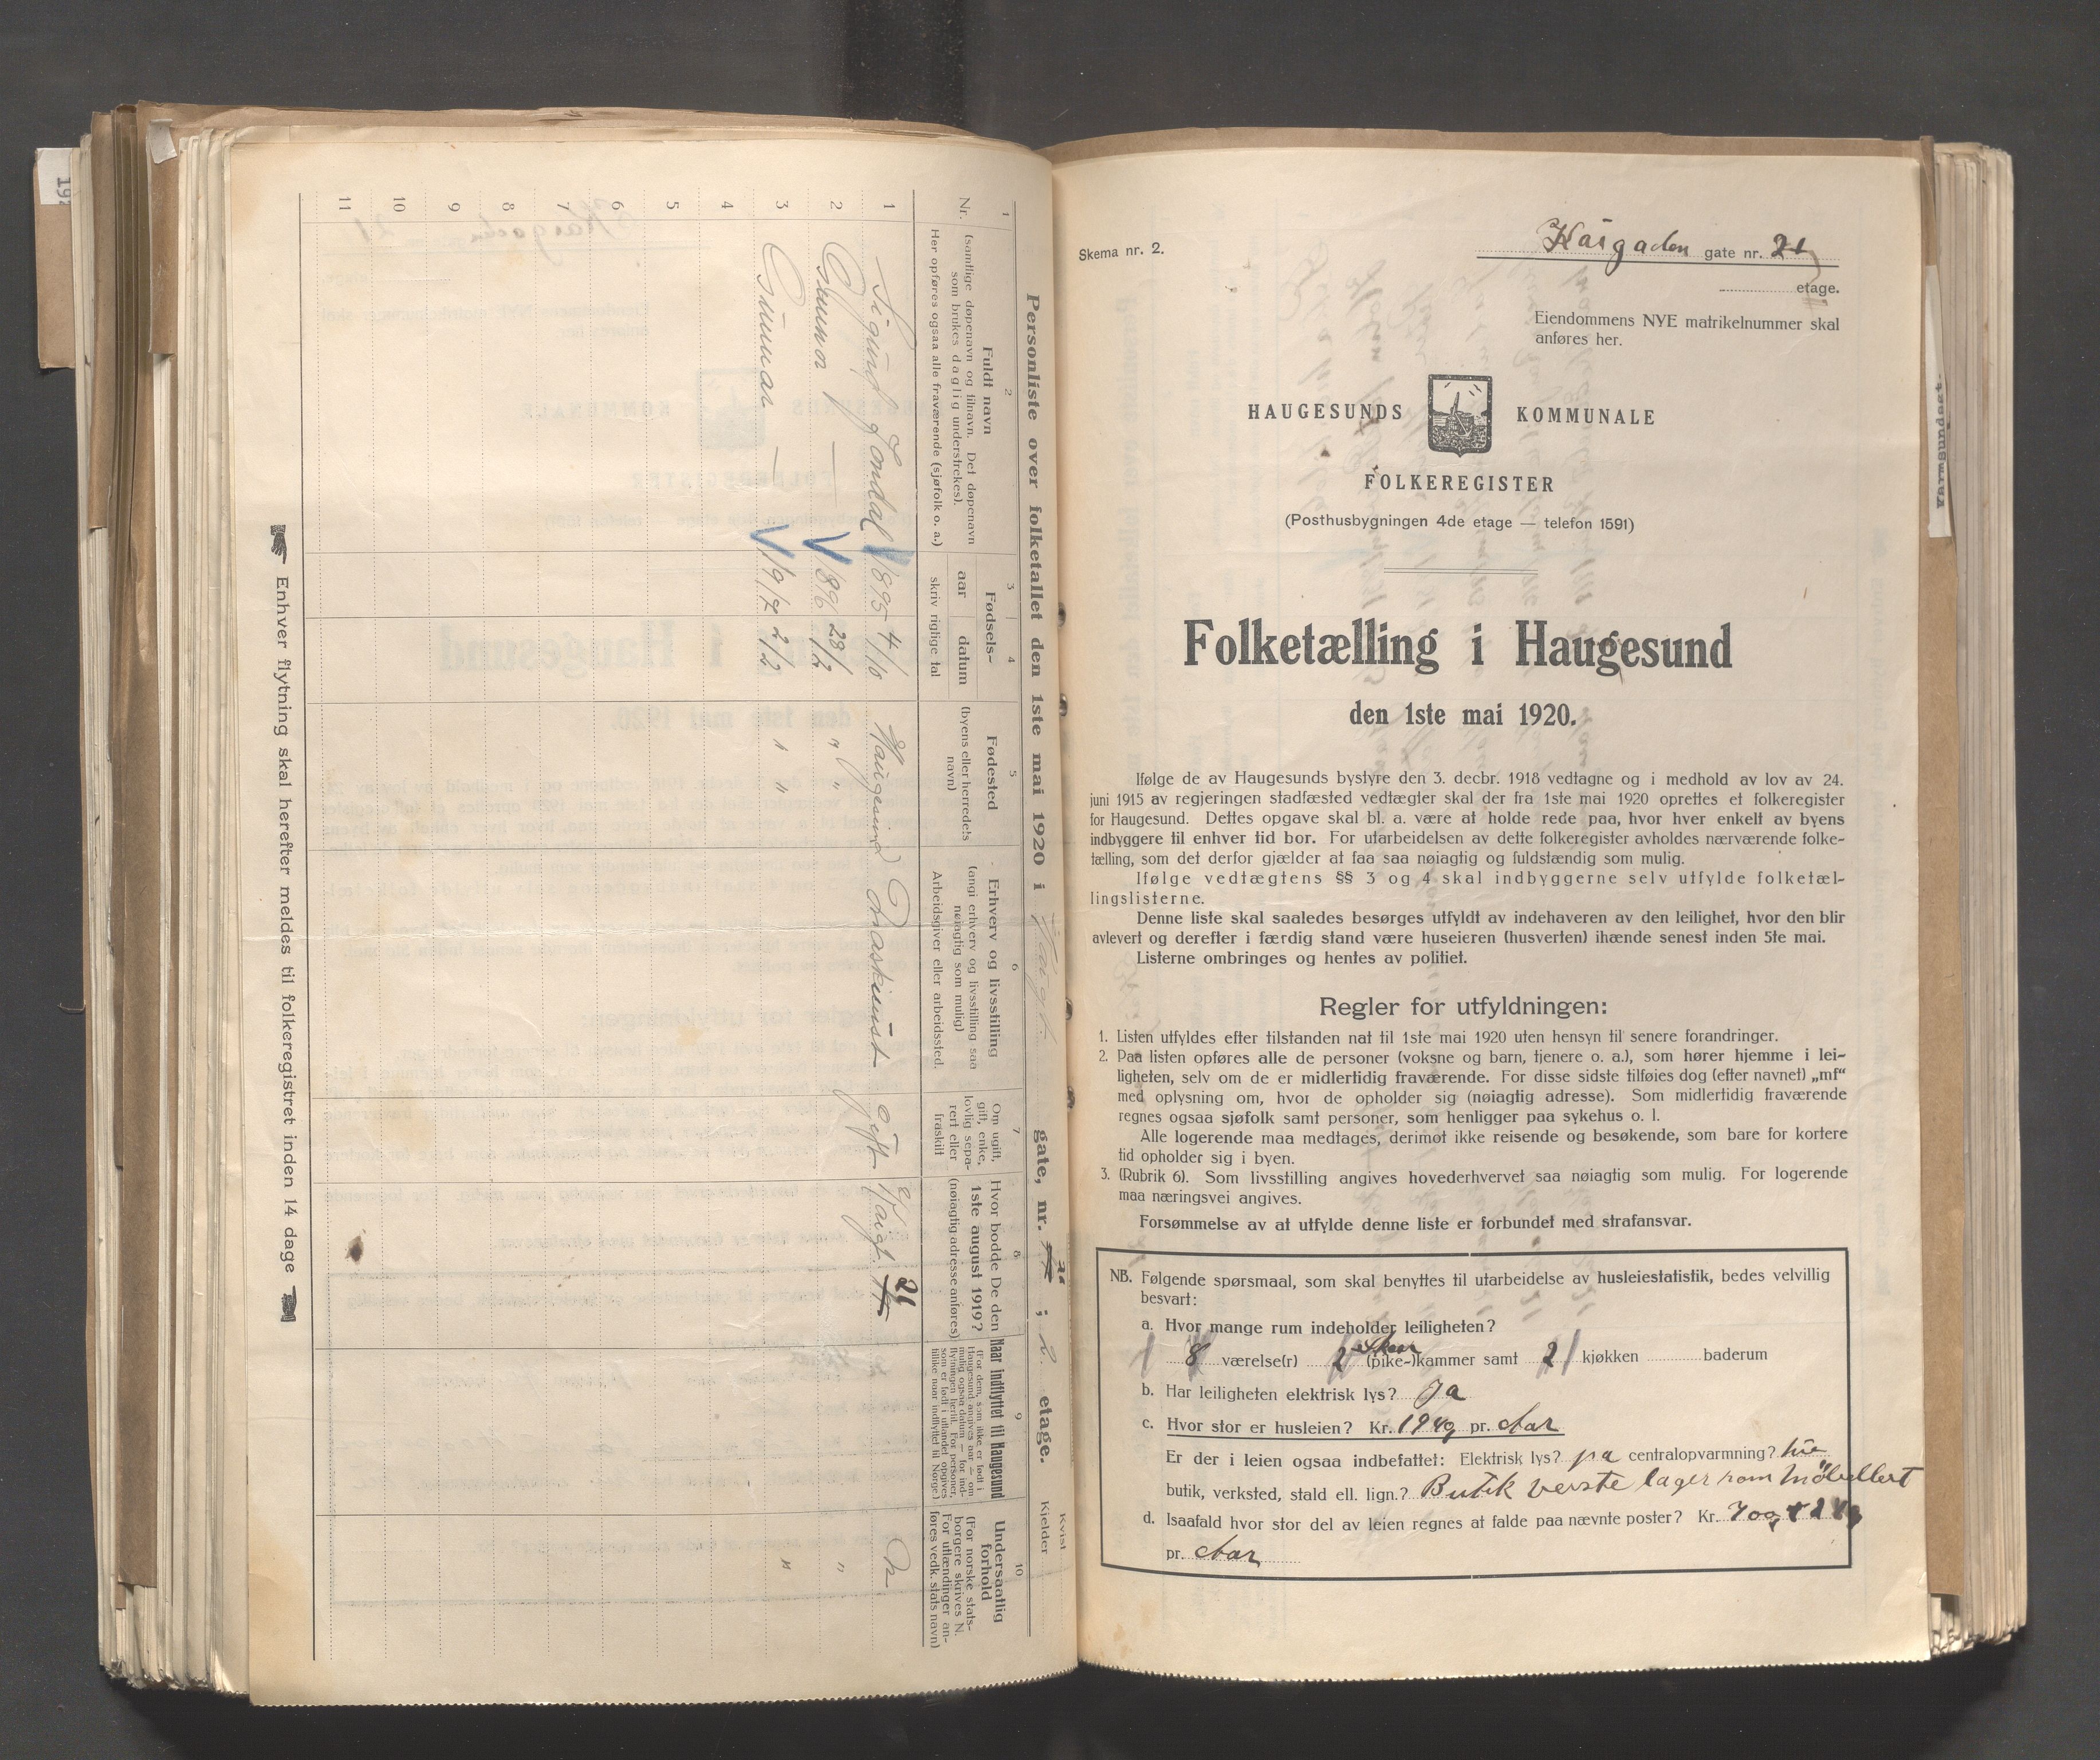 Personliste over folketallet den 1ste mai 1920 i Kaigt. gate, nr. 21 ; 2. etage. Kvist Kjelder
1 2 3 4 5 6 7 8 9 10
Nr.
Fuldt navn
(samtlige døpenavn og tilnavn. Det døpenavn
som brukes daglig understrekes).
Her opføres ogsaa alle fraværende (sjøfolk o. a.)
Fødsels-
aar datum
skriv rigtige tal
Fødested
(byens eller herredets
navn)
Erhverv og livsstilling
(angi erhverv og livsstilling saa
nøiagtig som mulig)
Arbeidsgiver eller arbeidssted.
Om ugift,
gift, enke,
lovlig sepa-
rert eller
fraskilt
Hvor bodde De den
1ste august 1919?
(nøiagtig adresse anføres)
Naar indflyttet til Haugesund
(For dem, som ikke er født i
Haugesund angives aar — om
mulig ogsaa datum — for ind-
flytningen hertil. For personer,
som er født i utlandet opgives
tillike naar indflyttet til Norge.)
Undersaatlig
forhold
(For norske stats-
borgere skrives N.
For utlændinger an-
føres vedk. stats navn)
1 Sigurd Jondal 1895 4/10 Haugesund Maskinist gift Kaigt. 21 N.
2 Gunnor — 1896 28/2 " " "
3 Gunnar — 1917 2/2 " " "
4
5
6
7
8
9
10
11
Enhver flytning skal herefter meldes til folkeregistret inden 14 dage
Skema nr. 2.
Kaigaden gate nr. 21
etage.
Eiendommens NYE matrikelnummer skal
anføres her.
HAUGESUNDS KOMMUNALE
FOLKEREGISTER
(Posthusbygningen 4de etage — telefon 1591)
Folketælling i Haugesund
den 1ste mai 1920.
Ifølge de av Haugesunds bystyre den 3. decbr. 1918 vedtagne og i medhold av lov av 24.
juni 1915 av regjeringen stadfæsted vedtægter skal der fra 1ste mai 1920 oprettes et folkeregister
for Haugesund. Dettes opgave skal bl. a. være at holde rede paa, hvor hver enkelt av byens
indbyggere til enhver tid bor. For utarbeidelsen av dette folkeregister avholdes nærværende folke-
tælling, som det derfor gjælder at faa saa nøiagtig og fuldstændig som mulig.
Ifølge vedtægtens §§ 3 og 4 skal indbyggerne selv utfylde folketæl-
lingslisterne.
Denne liste skal saaledes besørges utfyldt av indehaveren av den leilighet, hvor den blir
avlevert og derefter i færdig stand være huseieren (husverten) ihænde senest inden 5te mai.
Listerne ombringes og hentes av politiet.
Regler for utfyldningen:
1. Listen utfyldes efter tilstanden nat til 1ste mai 1920 uten hensyn til senere forandringer.
2. Paa listen opføres alle de personer (voksne og barn, tjenere o. a.), som hører hjemme i lei-
ligheten, selv om de er midlertidig fraværende. For disse sidste tilføies dog (efter navnet) „mf“
med oplysning om, hvor de opholder sig (nøiagtig adresse). Som midlertidig fraværende
regnes ogsaa sjøfolk samt personer, som henligger paa sykehus o. l.
Alle logerende maa medtages, derimot ikke reisende og besøkende, som bare for kortere
tid opholder sig i byen.
3. (Rubrik 6). Som livsstilling angives hovederhvervet saa nøiagtig som mulig. For logerende
maa næringsvei angives.
Forsømmelse av at utfylde denne liste er forbundet med strafansvar.
NB. Følgende spørsmaal, som skal benyttes til utarbeidelse av husleiestatistik, bedes velvillig
besvart:
a. Hvor mange rum indeholder leiligheten?
8 værelse(r) 2 (pike-)kammer samt 2 kjøkken baderum
b. Har leiligheten elektrisk lys? Ja
c. Hvor stor er husleien? Kr. 1940 pr. Aar
Er der i leien ogsaa indbefattet: Elektrisk lys? centralopvarmning?
butik, verksted, stald ell. lign.? Butik lager som
d. Isaafald hvor stor del av leien regnes at falde paa nævnte poster? Kr. 700
pr. Aar